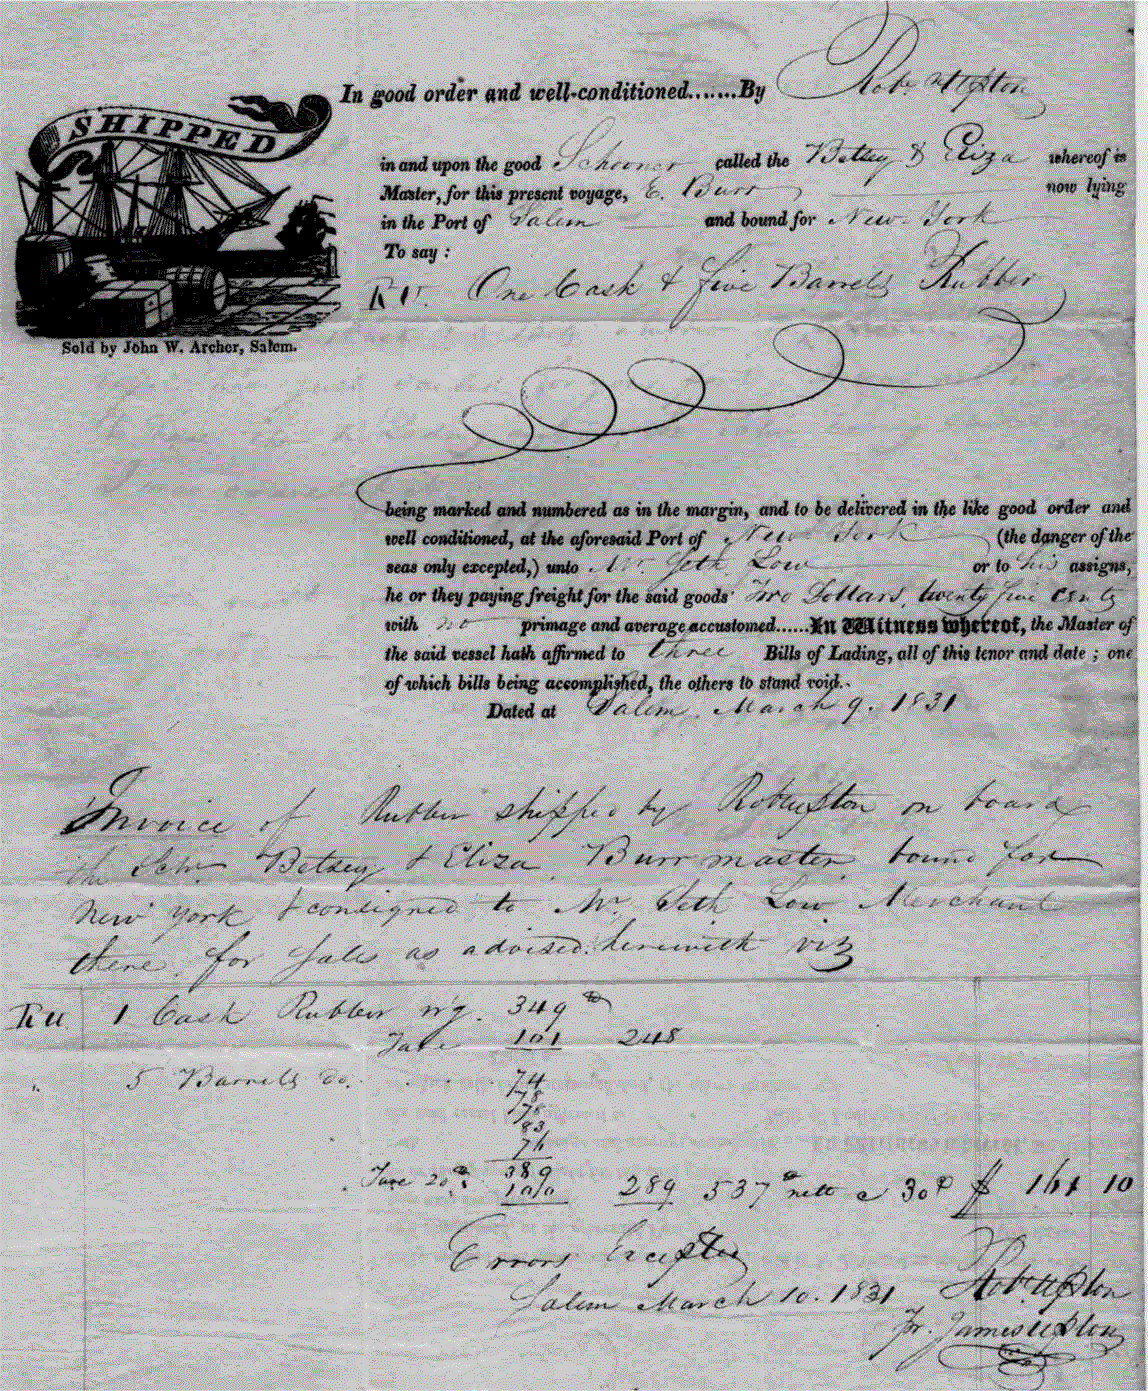 SHIPPED
Sold by John W. Archer, Salem.
In good order and well-conditioned.......By Robt Upton
in and upon the good Schooner called the Betsey & Eliza whereof is
Master, for this present voyage, E. Burr now lying
in the Port of Salem and bound for New-York
To say :
RU. One Cask & five Barrels Rubber
being marked and numbered as in the margin, and to be delivered in the like good order and
well conditioned, at the aforesaid Port of New York (the danger of the
seas only excepted,) unto Mr. Seth Low or to his assigns,
he or they paying freight for the said goods Two Dollars, twenty five cents
with no primage and average accustomed......In Witness whereof, the Master of
the said vessel hath affirmed to three Bills of Lading, all of this tenor and date ; one
of which bills being accomplished, the others to stand void.
Dated at Salem, March 9. 1831
Invoice of Rubber shipped by Robt Upton on board
the Schr. Betsey & Eliza, Burr master bound for
New York & consigned to Mr. Seth Low Merchant
there, for sale as advised herewith viz
RU 1 Cask Rubber w'g. 349 lb
Tare 101 248
" 5 Barrels do. 74
78
78
83
76
389
Tare 20 lb 100 289 537 lb nett a 30 $ 161 10
Errors Excepted
Salem March 10. 1831
Robt. Upton
Fr. James Upton